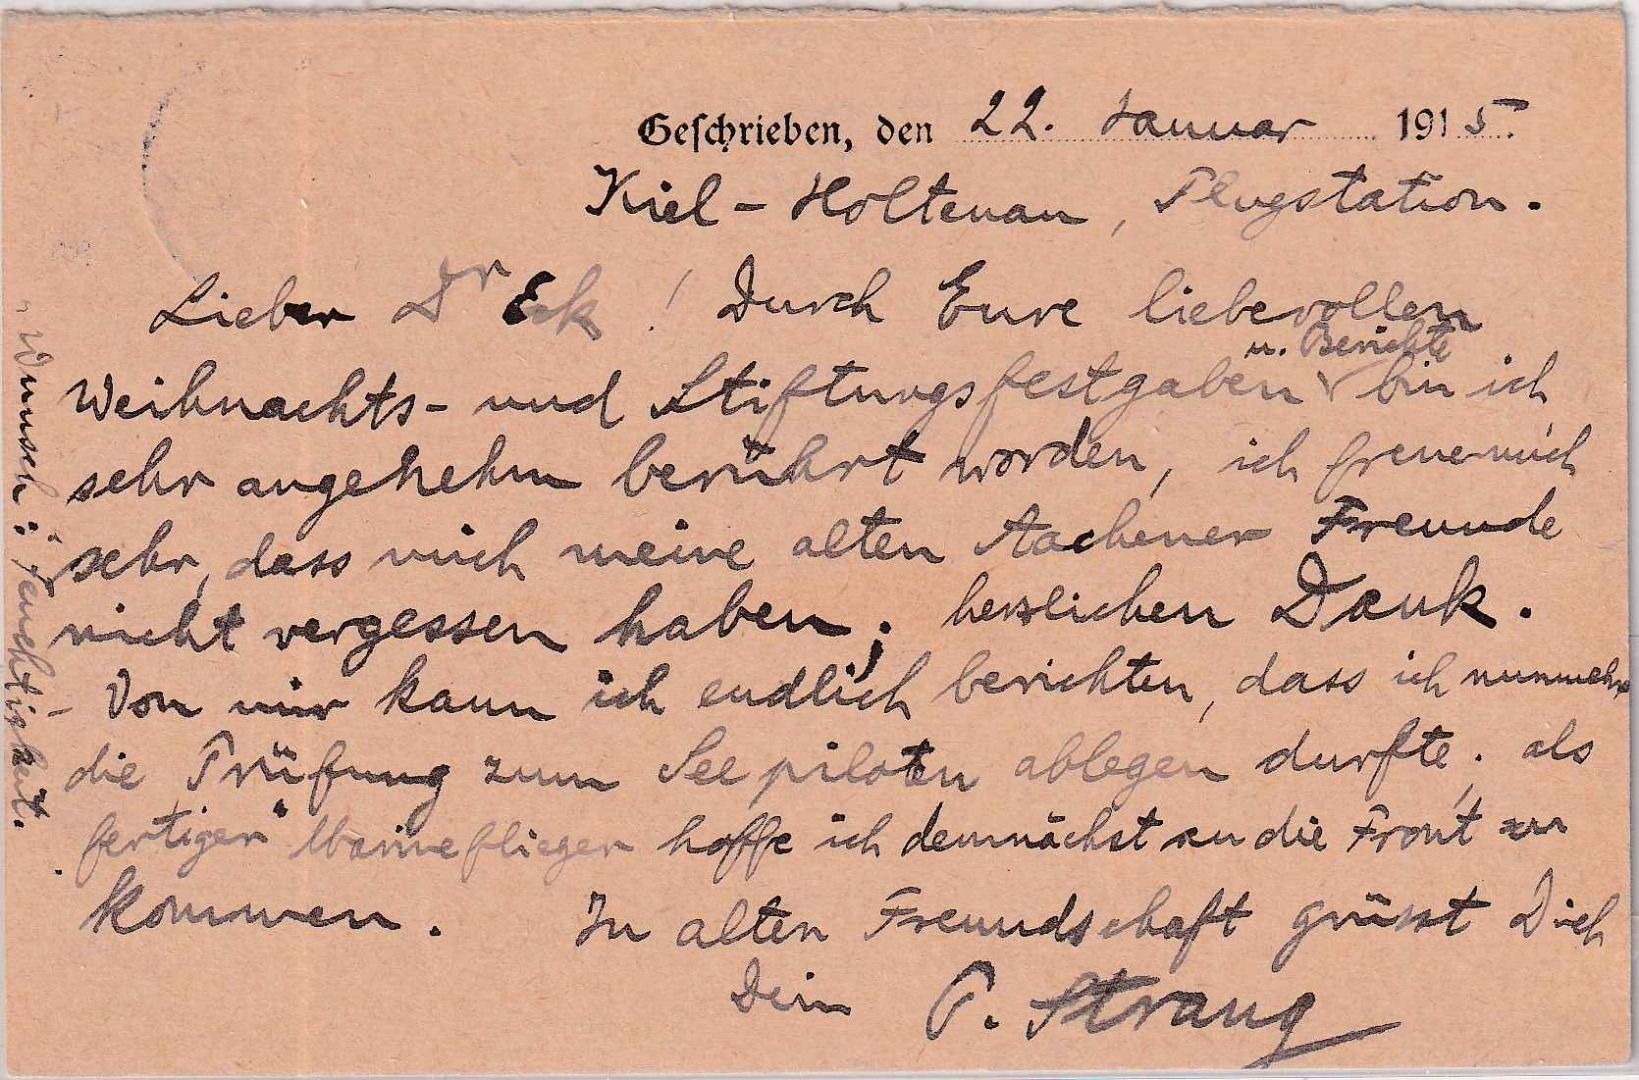 Geschrieben, den 22. Januar 1915.
Kiel-Holtenau, Flugstation.
Lieber Dr Eck! Durch Eure liebevollen
Weihnachts- und Stiftungsfestgaben u. Berichte bin ich
sehr angenehm berührt worden, ich freue mich
sehr, dass mich meine alten Aachener Freunde
nicht vergessen haben; herzlichen Dank.
- Von mir kann ich endlich berichten, dass ich nunmehr
die Prüfung zum Seepiloten ablegen durfte; als
fertiger Marineflieger hoffe ich demnächst an die Front zu
kommen. In alter Freundschaft grüsst Dich
Dein P. Strang
Wunsch: Feuchtigkeit.